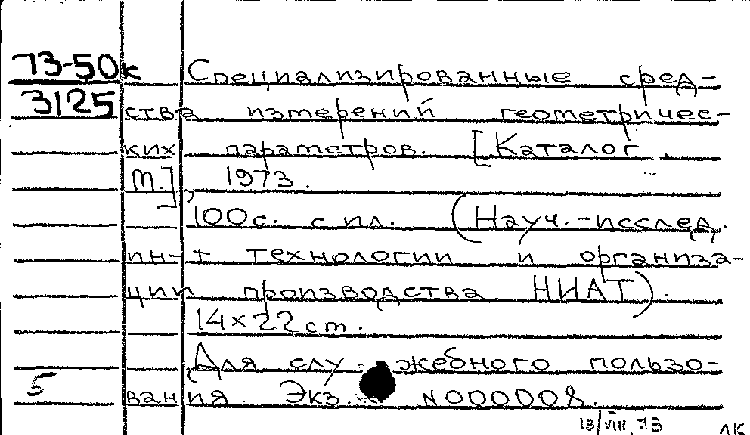 73-50к Специализированные сред-
3125 ства измерений геометричес-
ких параметров. [Каталог.
М.], 1973.
100с. с ил. (Науч.-исслед.
ин-т технологии и организа-
ции производства НИАТ).
14×22 cm.
Для слу-жебного пользо-
5 вания. Экз. N000008.
13/VIII.73 ЛК